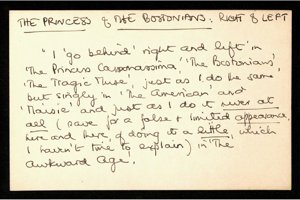 THE PRINCESS & THE BOSTONIANS: RIGHT & LEFT
"I 'go behind' right and left in
'The Princess Casamassima', 'The Bostonians',
'The Tragic Muse', just as I do the same
but singly in 'The American' and
'Maisie' and just as I do it never at
all (save for a false & limited appearance,
here and there, of doing it a little, which
I haven't time to explain) in 'The
Awkward Age'.